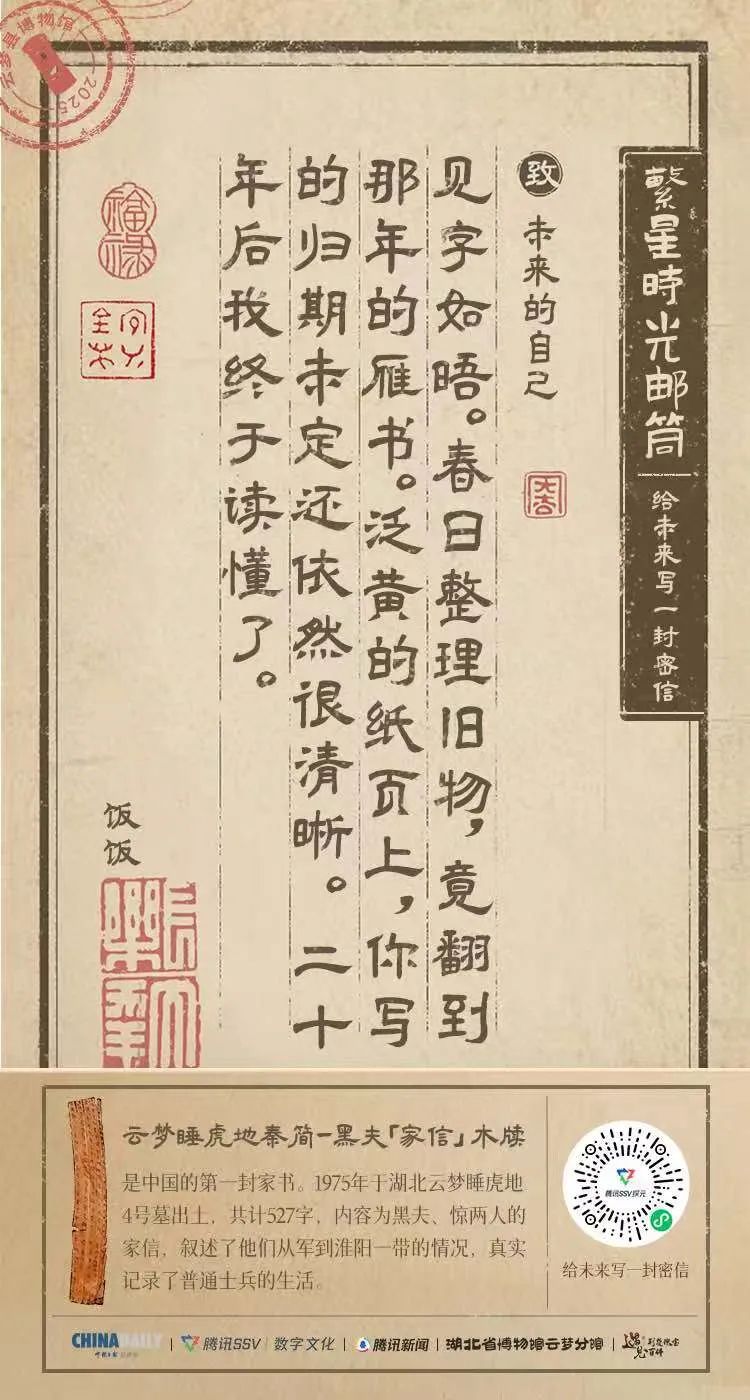 云梦县博物馆
2025
繁星時光邮筒
给未来写一封密信
致 未来的自己
见字如晤。春日整理旧物，竟翻到
那年的雁书。泛黄的纸页上，你写
的归期未定还依然很清晰。二十
年后我终于读懂了。
福禄
饭饭
长乐
云梦睡虎地秦简-黑夫「家信」木牍
是中国的第一封家书。1975年于湖北云梦睡虎地
4号墓出土，共计527字，内容为黑夫、惊两人的
家信，叙述了他们从军到淮阳一带的情况，真实
记录了普通士兵的生活。
腾讯SSV探元
给未来写一封密信
CHINA DAILY
中国日报
腾讯SSV
数字文化
腾讯新闻
湖北省博物馆云梦分馆